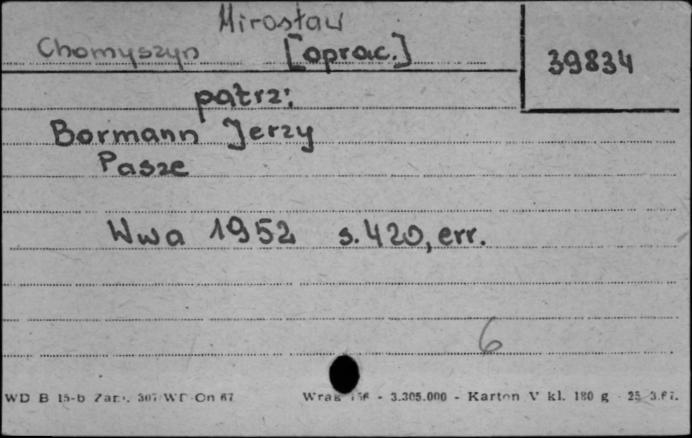 Mirosław
Chomyszyn [oprac.]
39834
patrz:
Bormann Jerzy
Pasze
Wwa 1952 s. 420, err.
6
WD B 15-b Zam. 307 WD On 67 - 3.305.000 - Karton V kl. 180 g - 25.3.67.